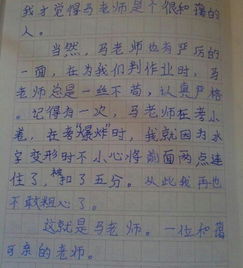 我才觉得马老师是个很和蔼的
人。
当然，马老师也有严厉的
一面，在为我们判作业时，马
老师总是一丝不苟，认真严格
。记得有一次，马老师在考小
卷，在考爆炸时，我就因为水
字变形时不小心将前面两点连
住了，被扣了五分。从此我再也
不敢粗心了。
这就是马老师。一位和蔼
可亲的老师。